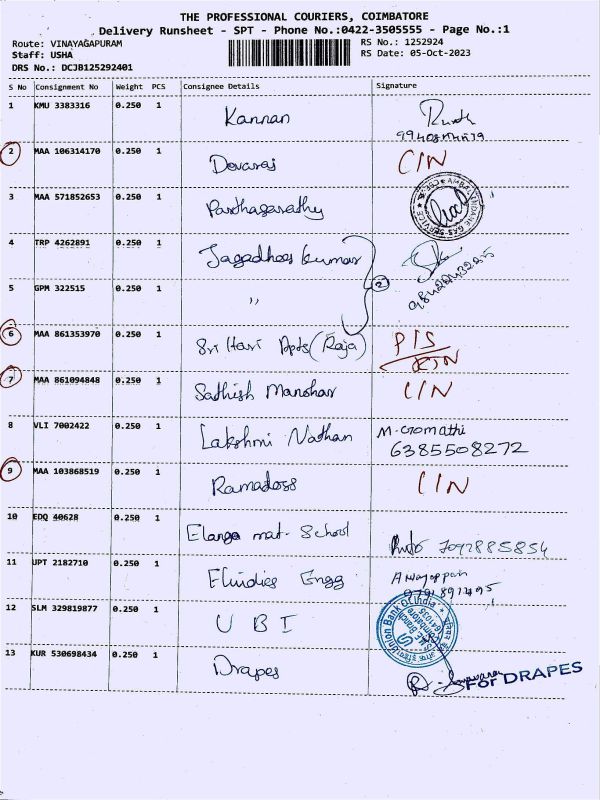 THE PROFESSIONAL COURIERS, COIMBATORE
Delivery Runsheet - SPT - Phone No.:0422-3505555 - Page No.:1
Route: VINAYAGAPURAM
Staff: USHA
DRS No.: DCJB125292401
RS No.: 1252924
RS Date: 05-Oct-2023
S No Consignment No Weight PCS Consignee Details Signature
1 KMU 3383316 0.250 1 Kannan
2 MAA 106314170 0.250 1 Devaraj CIN
3 MAA 571852653 0.250 1 Parthasarathy
4 TRP 4262891 0.250 1 Jagadhees kumar
5 GPM 322515 0.250 1 ,, 2
6 MAA 861353970 0.250 1 Sri Hari Appts (Raja) P/S
7 MAA 861094848 0.250 1 Sathish Manohar CIN
8 VLI 7002422 0.250 1 Lakshmi Nathan M. Gomathi
6385508272
9 MAA 103868519 0.250 1 Ramadoss CIN
10 EDQ 40628 0.250 1 Elango mat. School 7092885854
11 UPT 2182710 0.250 1 Engg
12 SLM 329819877 0.250 1 U B I
Union Bank Of India
13 KUR 530698434 0.250 1 Drapes
For DRAPES